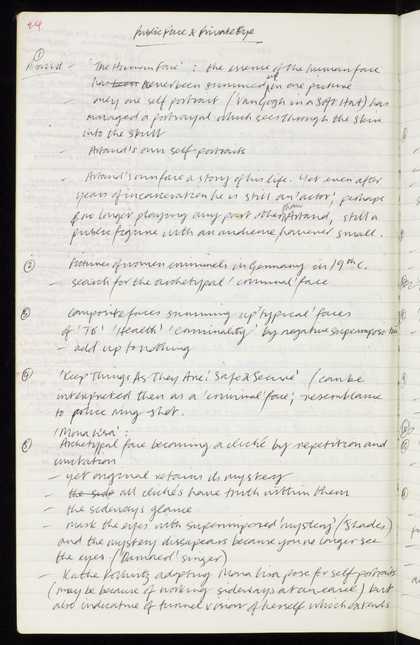 24
Public Face & Private Eye
①
Artaud - 'The Human Face' : the essence of the human face
has been never been summed up in one picture
- only one self portrait (Van Gogh in a soft Hat) has
managed a portrayal which sees through the skin
into the skull
- Artaud's own self-portraits
- Artaud's own face a story of his life. Yet even after
years of incarceration he is still an 'actor', perhaps
no longer playing any part other than Artaud, still a
public figure with an audience however small.
② Pictures of women criminals in Germany in 19th C.
- search for the archetypal 'criminal' face
③ Composite faces summing up 'typical' faces
of 'TB' 'Health' 'Criminality' by negative superimposition
- add up to nothing
④ 'Keep Things As They Are: Safe & Secure' (can be
interpreted then as a 'criminal' face; resemblance
to police mug shot.
'Mona Lisa' :
⑤ Archetypal face becoming a cliché by repetition and
imitation
- yet original retains its mystery
- the side all clichés have truth within them
- the sideways glance
- mask the eyes with superimposed 'mystery' (Shades)
and the mystery dissapears because you no longer see
the eyes. ( singer)
- Kathe Kollwitz adopting Mona Lisa pose for self-portraits
(may be because of working sideways at an easel) but
also indicative of tunnel vision of herself which extends